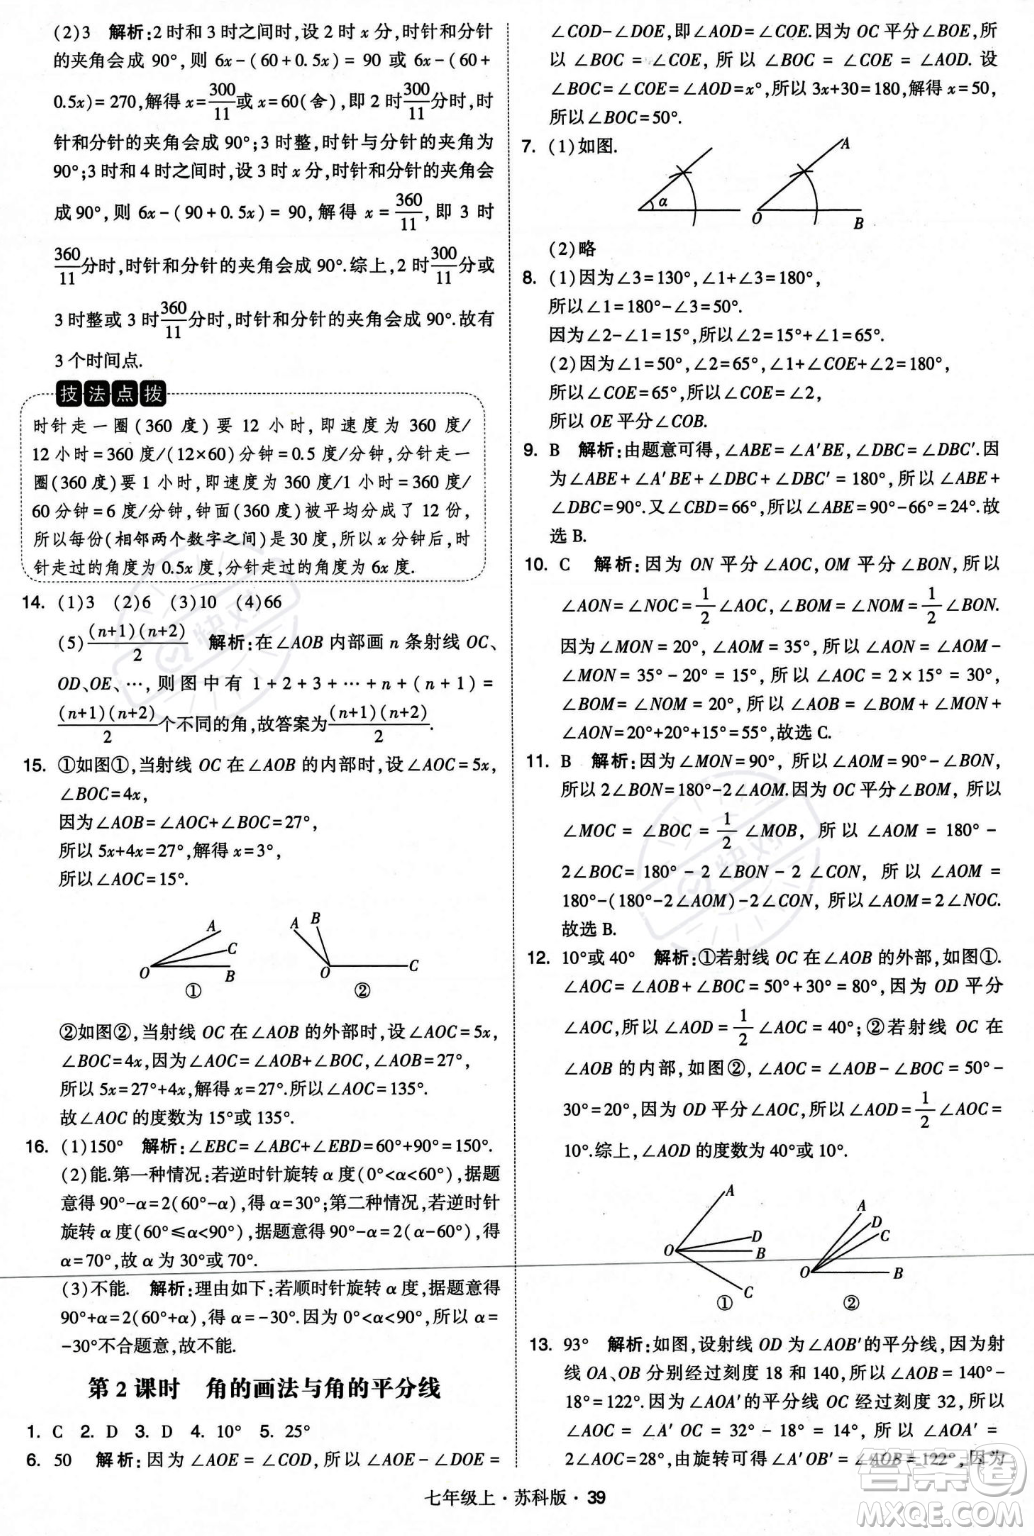 (2)3 解析:2 时和 3 时之间时,设 2 时 x 分,时针和分针
的夹角会成 90°, 则 6x-(60+0.5x)= 90 或 6x-(60+
0.5x)= 270,解得 x=300/11或 x=60(舍),即 2 时300/11分时,时
针和分针的夹角会成 90°;3 时整,时针与分针的夹角为
90°;3 时和 4 时之间时,设 3 时 x 分,时针和分针的夹角会
成 90°, 则 6x-(90+0.5x)= 90, 解得 x=360/11, 即 3 时
360/11分时,时针和分针的夹角会成 90°.综上,2 时300/11分或
3 时整或 3 时360/11分时,时针和分针的夹角会成 90°.故有
3 个时间点.
技法点拨
时针走一圈(360 度)要 12 小时,即速度为 360 度/
12 小时=360 度/(12×60)分钟=0.5 度/分钟,分针走一
圈(360 度)要 1 小时,即速度为 360 度/1 小时=360 度/
60 分钟=6 度/分钟,钟面(360 度)被平均分成了 12 份,
所以每份(相邻两个数字之间)是 30 度,所以 x 分钟后,时
针走过的角度为 0.5x 度,分针走过的角度为 6x 度.
14. (1)3 (2)6 (3)10 (4)66
(5)(n+1)(n+2)/2 解析:在∠AOB 内部画 n 条射线 OC、
OD、OE、…,则图中有 1+2+3+…+n+(n+1)=
(n+1)(n+2)/2个不同的角,故答案为(n+1)(n+2)/2.
15. ①如图①,当射线 OC 在∠AOB 的内部时,设∠AOC=5x,
∠BOC=4x,
因为∠AOB=∠AOC+∠BOC=27°,
所以 5x+4x=27°,解得 x=3°,
所以∠AOC=15°.
A C O B ①
A B O C ②
②如图②,当射线 OC 在∠AOB 的外部时,设∠AOC=5x,
∠BOC=4x,因为∠AOC=∠AOB+∠BOC,
所以 5x=27°+4x,解得 x=27°.所以∠AOC=135°.
故∠AOC 的度数为 15°或 135°.
16. (1)150° 解析:∠EBC=∠ABC+∠EBD=60°+90°=150°.
(2)能.第一种情况:若逆时针旋转 α 度(0°<α<60°),据题
意得 90°-α=2(60°-α),得 α=30°;第二种情况,若逆时针
旋转 α 度(60°≤α<90°),据题意得 90°-α=2(α-60°),得
α=70°,故 α 度为 30°或 70°.
(3)不能. 解析:理由如下:若顺时针旋转 α 度,据题意得
90°+α=2(60°+α),得 α=-30°.因为 0°<α<90°,α=
-30°不合题意,故不能.
第 2 课时 角的画法与角的平分线
1. C 2. D 3. D 4. 10° 5. 25°
6. 50 解析:因为∠AOE=∠COD,所以∠AOE-∠DOE=
∠COD-∠DOE,即∠AOD=∠COE.因为 OC 平分∠BOE,所
以∠BOC=∠COE, 所以∠BOC=∠COE=∠AOD. 设
∠BOC=∠COE=∠AOD=x°,所以 3x+30=180,解得 x=50,
所以∠BOC=50°.
7. (1)如图.
α O A B
(2)略
8. (1)因为∠3=130°,∠1+∠3=180°,
所以∠1=180°-∠3=50°.
因为∠2-∠1=15°,所以∠2=15°+∠1=65°.
(2)因为∠1=50°,∠2=65°,∠1+∠COE+∠2=180°,
所以∠COE=65°,所以∠COE=∠2,
所以 OE 平分∠COB.
9. B 解析:由题意可得,∠ABE=∠A′BE,∠DBC=∠DBC′.因
为∠ABE+∠A′BE+∠DBC+∠DBC′=180°,所以∠ABE+
∠DBC=90°.又∠CBD=66°,所以∠ABE=90°-66°=24°.故
选 B.
10. C 解析:因为 ON 平分∠AOC,OM 平分∠BON,所以
∠AON=∠NOC=1/2∠AOC,∠BOM=∠NOM=1/2∠BON.
因为∠MON=20°,∠AOM=35°,所以∠AON=∠AOM-
∠MON=35°-20°=15°,所以∠AOC=2×15°=30°,
∠BOM=∠NOM=20°,所以∠AOB=∠BOM+∠NOM+
∠AON=20°+20°+15°=55°,故选 C.
11. B 解析:因为∠MON=90°,所以∠AOM=90°-∠BON,
所以 2∠BON=180°-2∠AOM.因为 OC 平分∠BOM,所以
∠MOC=∠BOC=1/2∠MOB,所以∠AOM=180°-
2∠BOC=180°-2(∠BON+∠CON,所以∠AOM=
180°-(180°-2∠AOM)-2∠CON,所以∠AOM=2∠NOC.
故选 B.
12. 10°或 40° 解析:①若射线 OC 在∠AOB 的外部,如图①.
∠AOC=∠AOB+∠BOC=50°+30°=80°,因为 OD 平分
∠AOC,所以∠AOD=1/2∠AOC=40°;②若射线 OC 在
∠AOB 的内部,如图②,∠AOC=∠AOB-∠BOC=50°-
30°=20°,因为 OD 平分∠AOC,所以∠AOD=1/2∠AOC=
10°.综上,∠AOD 的度数为 40°或 10°.
A D B O C ①
A D C O B ②
13. 93° 解析:如图,设射线 OD 为∠AOB′的平分线,因为射
线 OA、OB 分别经过刻度 18 和 140,所以∠AOB=140°-
18°=122°,因为∠AOA′的平分线 OC 经过刻度 32,所以
∠AOC=∠A′OC=32°-18°=14°,所以∠AOA′=
2∠AOC=28°,由旋转可得∠A′OB′=∠AOB=122°,因为
七年级上·苏科版·39
答案圈
MXQE.COM